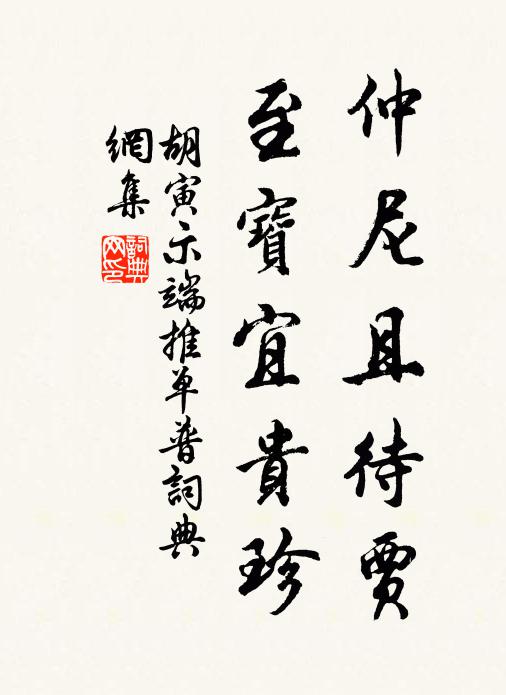 仲尼且待賈
至寶宜貴珍
胡寅示端推單普詞典
網集
詞典
网印